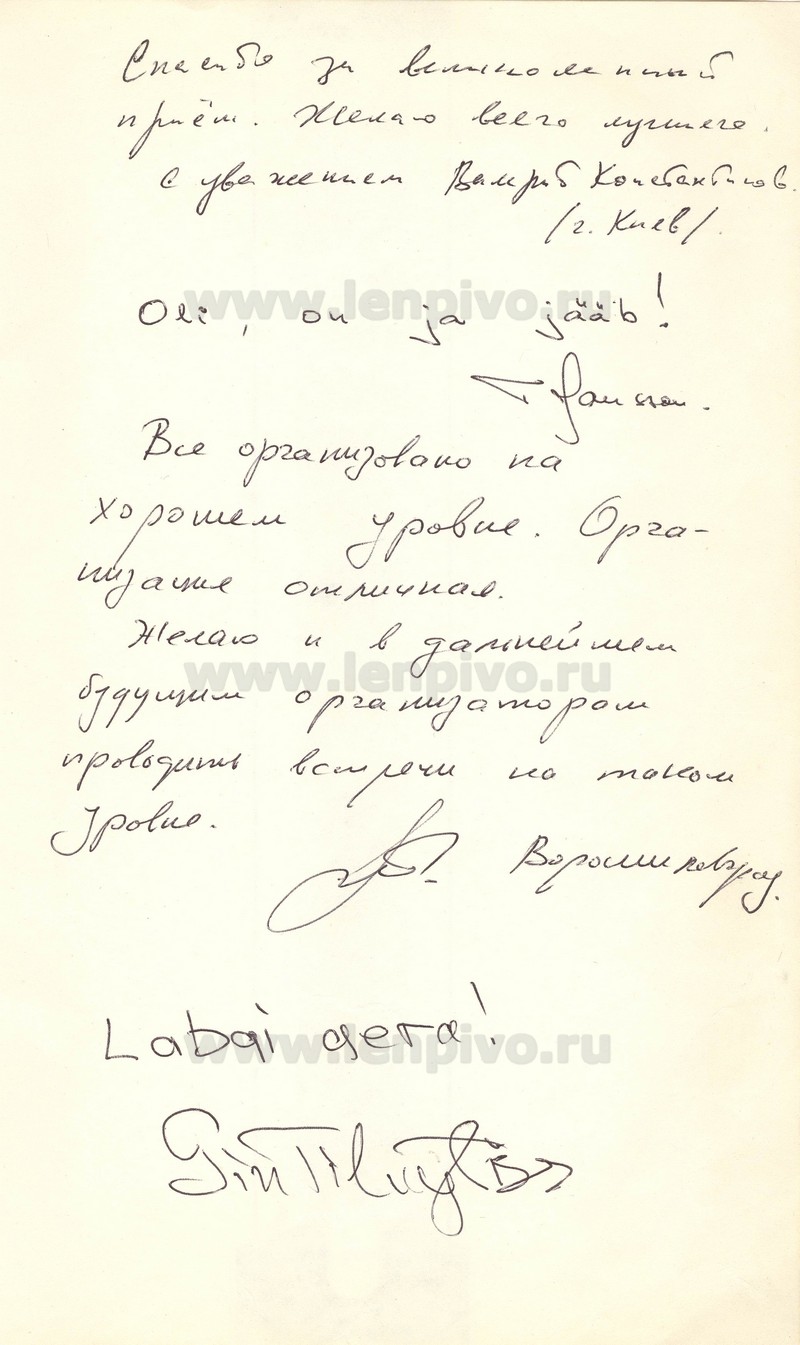 Спасибо за великолепный
приём. Желаю всего лучшего.
С уважением Валерий Константинов.
/г. Киев/.
www.lenpivo.ru
Oli, on ja jääb!
Все организовано на
хорошем уровне. Орга-
низация отличная.
Желаю и в дальнейшем
www.lenpivo.ru
будущим организаторам
проводить встречи на таком
уровне.
Ворошиловград.
Labai gera!
www.lenpivo.ru